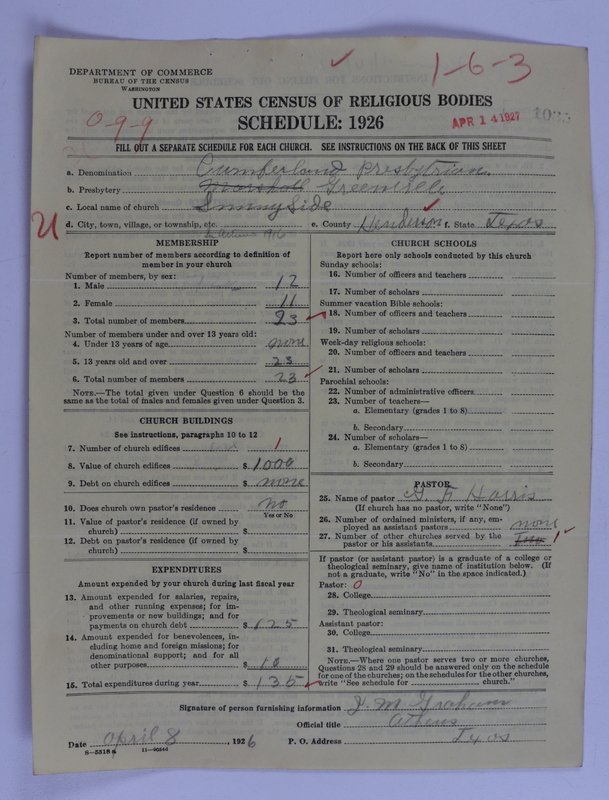 1-6-3
DEPARTMENT OF COMMERCE
BUREAU OF THE CENSUS
WASHINGTON
UNITED STATES CENSUS OF RELIGIOUS BODIES
SCHEDULE: 1926
APR 14 1927
0-9-9
FILL OUT A SEPARATE SCHEDULE FOR EACH CHURCH. SEE INSTRUCTIONS ON THE BACK OF THIS SHEET
a. Denomination Cumberland Presbytrian
b. Presbytery Marshall Greenville
c. Local name of church Sunny Side
d. City, town, village, or township, etc. e. County Henderson f. State Texas
MEMBERSHIP
Report number of members according to definition of member in your church
Number of members, by sex:
1. Male 12
2. Female 11
3. Total number of members 23
Number of members under and over 13 years old:
4. Under 13 years of age none
5. 13 years old and over 23
6. Total number of members 23
NOTE.—The total given under Question 6 should be the
same as the total of males and females given under Question 3.
CHURCH BUILDINGS
See instructions, paragraphs 10 to 12
7. Number of church edifices 1
8. Value of church edifices $ 1000
9. Debt on church edifices $ none
10. Does church own pastor's residence no
Yes or No
11. Value of pastor's residence (if owned by
church) $
12. Debt on pastor's residence (if owned by
church) $
EXPENDITURES
Amount expended by your church during last fiscal year
13. Amount expended for salaries, repairs,
and other running expenses; for im-
provements or new buildings; and for
payments on church debt $ 125
14. Amount expended for benevolences, in-
cluding home and foreign missions; for
denominational support; and for all
other purposes $ 10
15. Total expenditures during year $ 135
CHURCH SCHOOLS
Report here only schools conducted by this church
Sunday schools:
16. Number of officers and teachers
17. Number of scholars
Summer vacation Bible schools:
18. Number of officers and teachers
19. Number of scholars
Week-day religious schools:
20. Number of officers and teachers
21. Number of scholars
Parochial schools:
22. Number of administrative officers
23. Number of teachers—
a. Elementary (grades 1 to 8)
b. Secondary
24. Number of scholars—
a. Elementary (grades 1 to 8)
b. Secondary
PASTOR
25. Name of pastor G. F. Harris
(If church has no pastor, write "None")
26. Number of ordained ministers, if any, em-
ployed as assistant pastors none
27. Number of other churches served by the
pastor or his assistants Two 1
If pastor (or assistant pastor) is a graduate of a college or
theological seminary, give name of institution below. (If
not a graduate, write "No" in the space indicated.)
Pastor: 0
28. College
29. Theological seminary
Assistant pastor:
30. College
31. Theological seminary
NOTE.—Where one pastor serves two or more churches,
Questions 28 and 29 should be answered only on the schedule
for one of the churches; on the schedules for the other churches,
write "See schedule for church."
Signature of person furnishing information J. M. Graham
Official title Athens
Date April 8, 1926 P. O. Address Texas
8-5518a